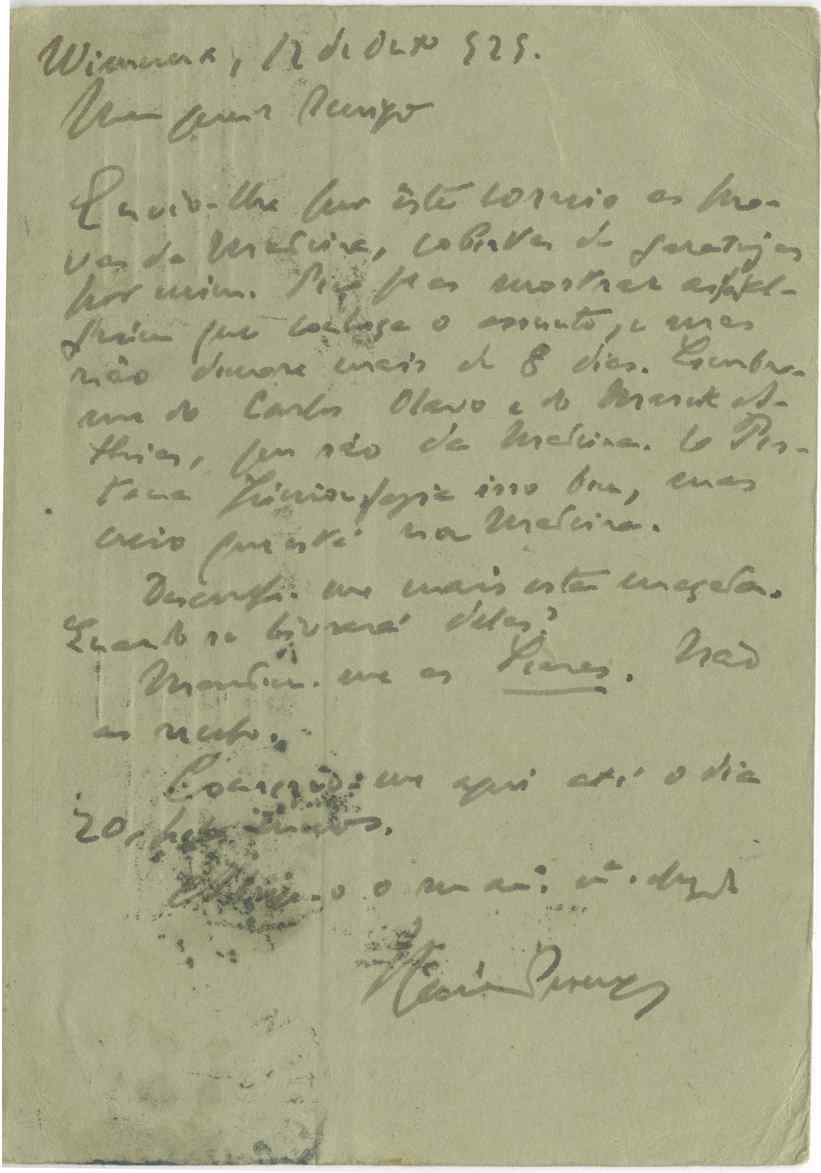 Wimereux, 12 de Outº 929.
Meu querido Amigo
Envio-lhe por êste correio as pro-
vas da Medicina, cobertas de garatujas
por mim. Peço p.ª as mostrar a
alguém que conheça o assunto, e mas
não demore mais de 8 dias. Lembro-
me do Carlos Olavo e do Marck A-
thias, que são da Medicina. O Pes-
tana Júnior fazia isso bem, mas
creio que está na Madeira.
Desculpe-me mais esta maçada.
Quando se livrará delas?
Mandem-me as Searas. Não
as recebo.
Conservo-me aqui até o dia
20, pelo menos.
Abraça-o o seu am.º mt.º